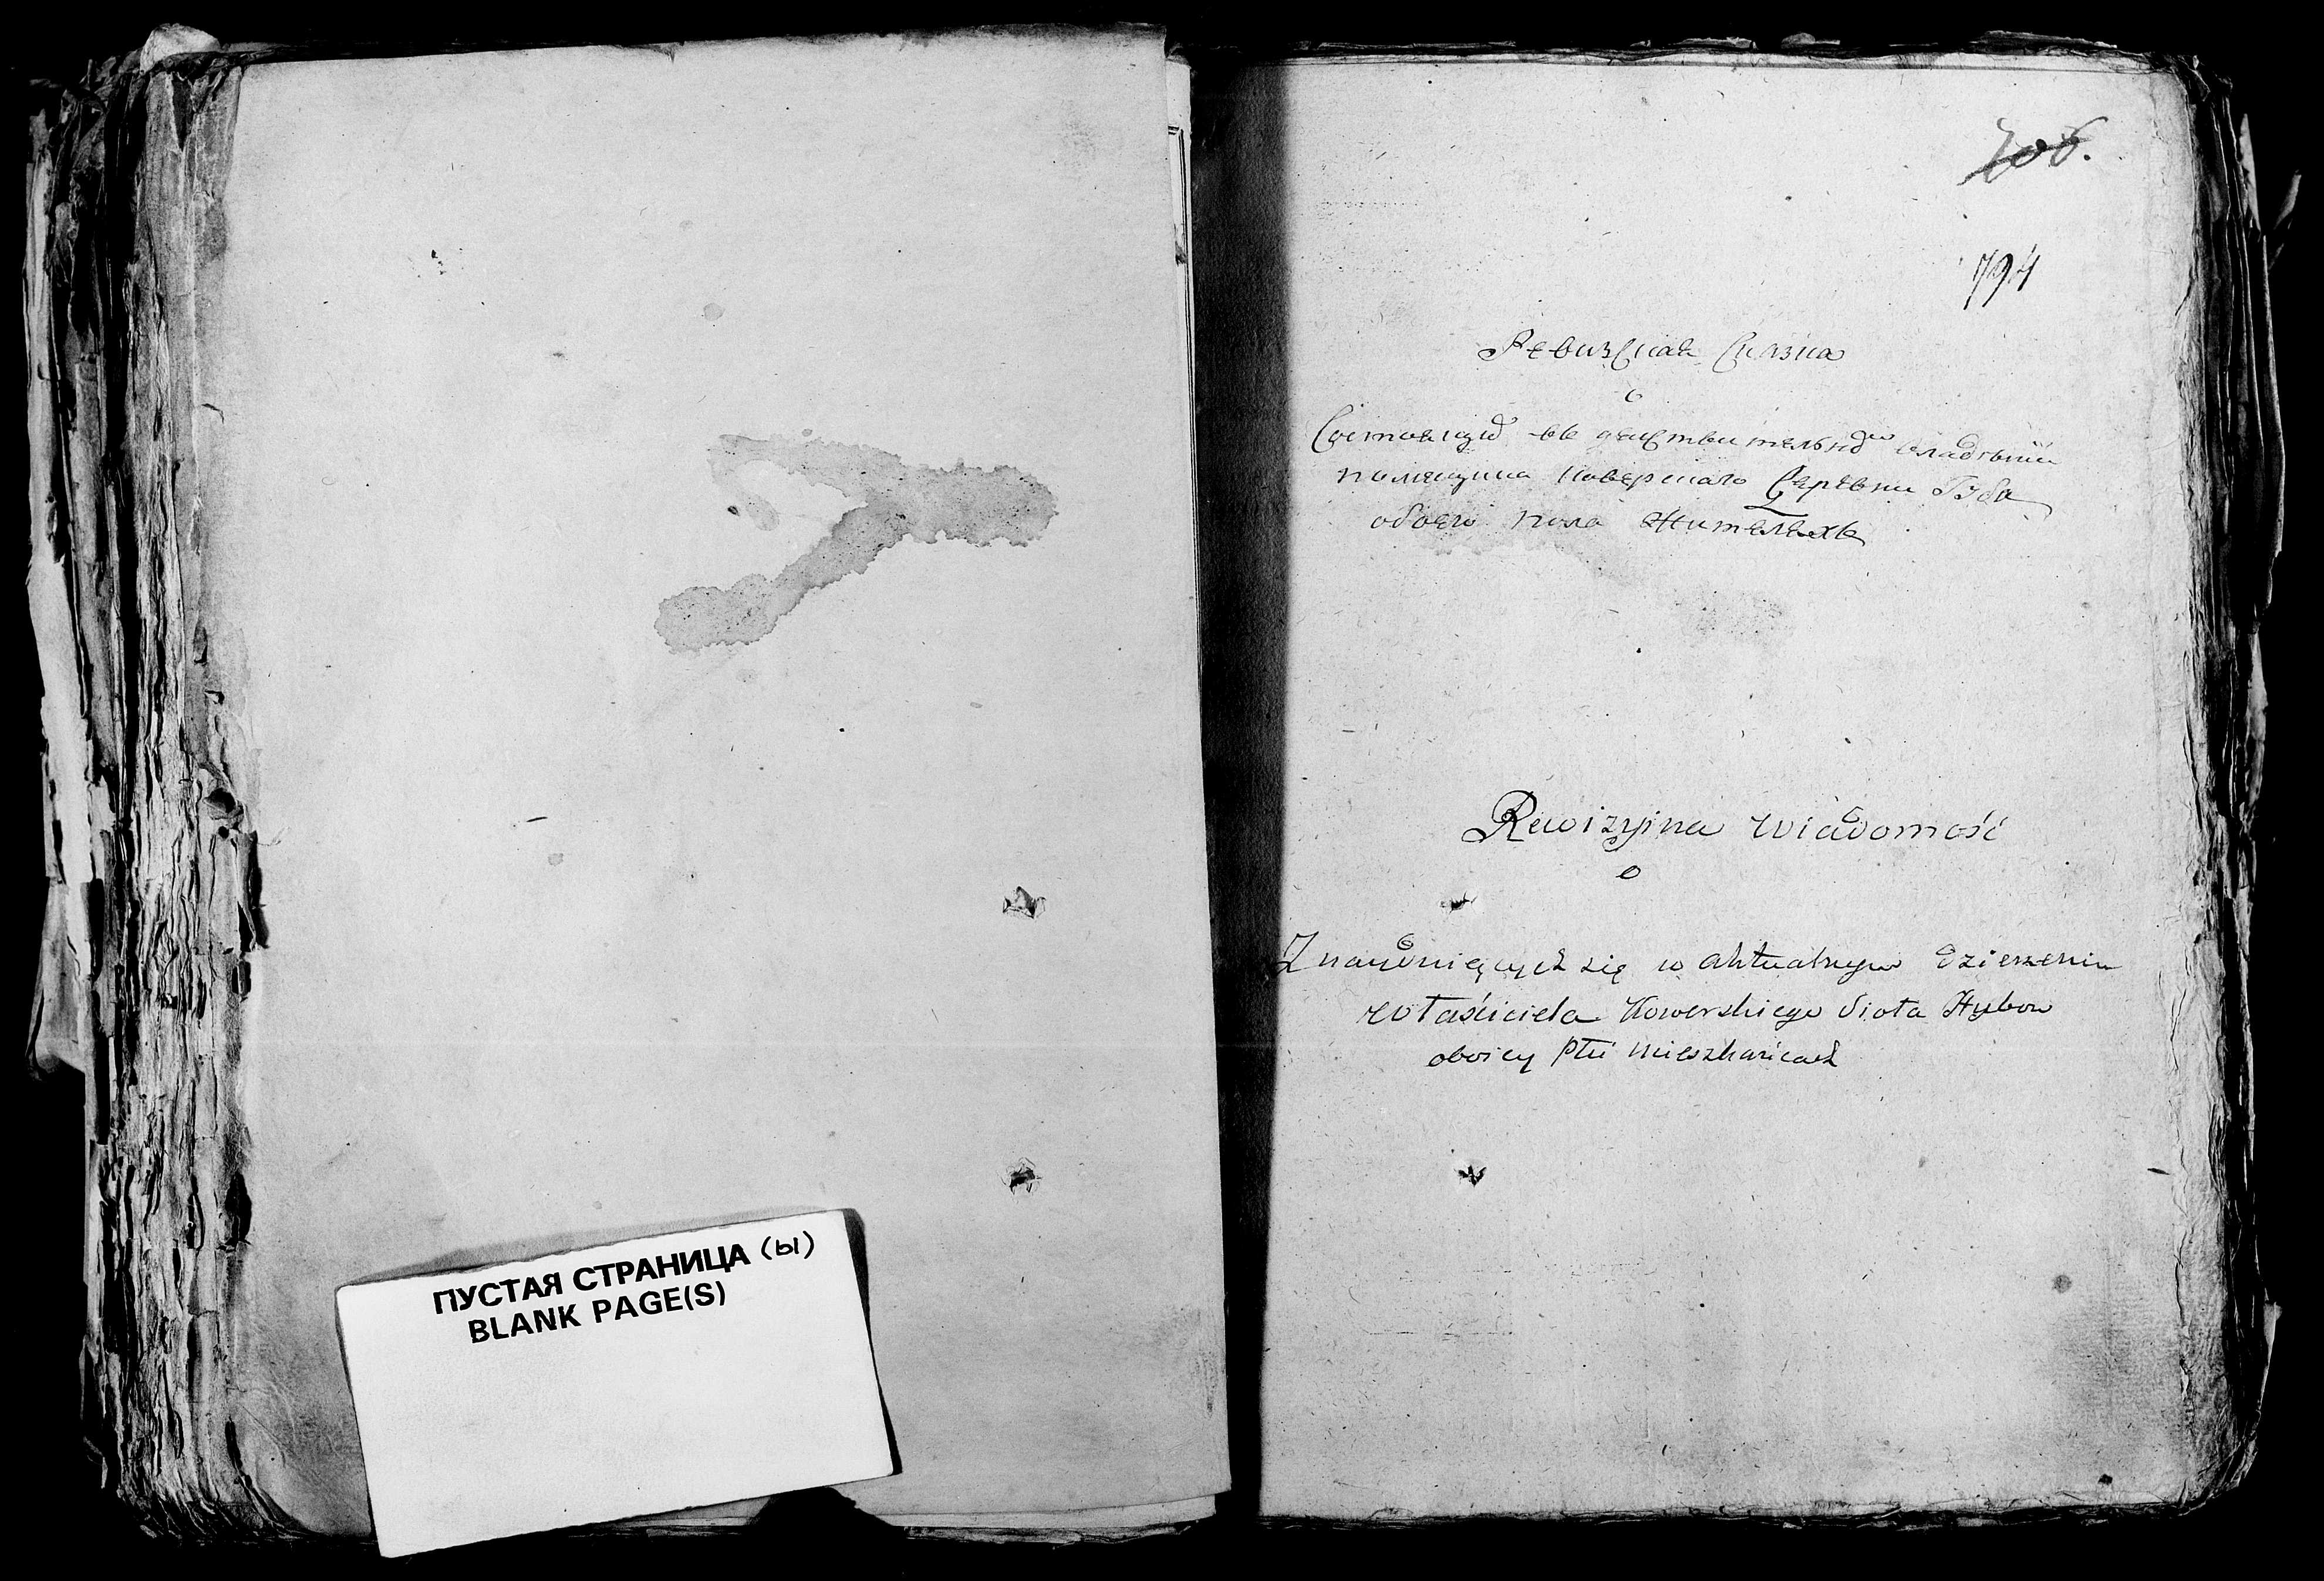 ПУСТАЯ СТРАНИЦА (ы)
BLANK PAGE(S)
706.
794
Ревизская Сказка
о
Состоящих въ действительномъ владѣнии
помещика Коверскаго Деревни Губа
обоего пола жителехъ
Rewizyjna wiadomość
o
Znayduięcych się w aktualnym dzierzeniu
właściciela Kowerskiego Sioła Hybow
oboiey płci mieszkańcach